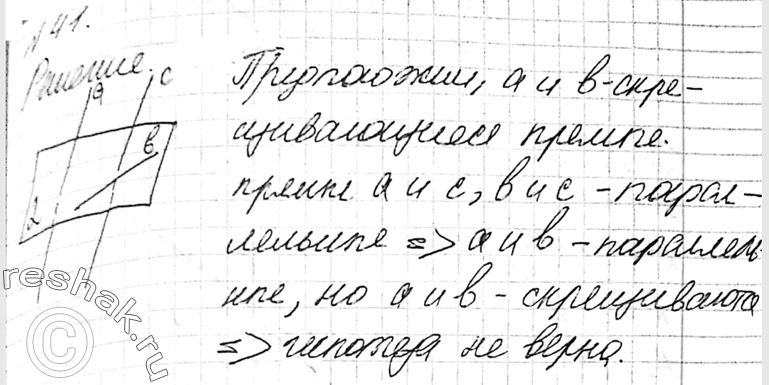 №41.
Решение
a
c
в
α
Предположим, а и в-скре-
щивающиеся прямые.
прямые а и с, в и с - парал-
лельные => а и в - параллель-
ные, но а и в - скрещиваются
=> гипотеза не верна.
reshak.ru
©